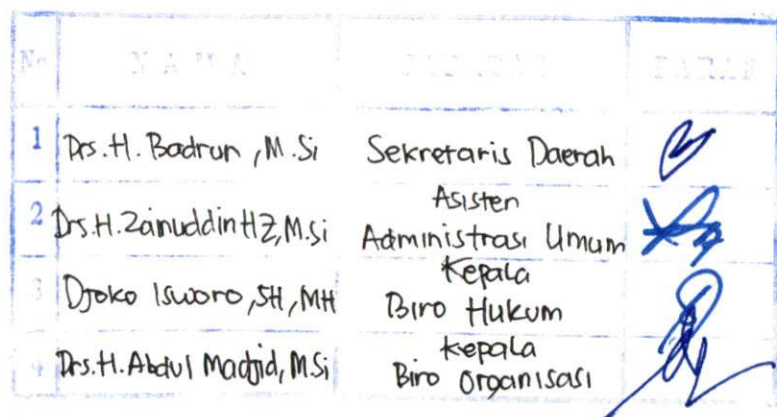 No N A M A JABATAN PARAF
1 Drs. H. Badrun, M.Si Sekretaris Daerah
2 Drs. H. Zainuddin HZ, M.Si Asisten
Administrasi Umum
3 Djoko Isworo, SH, MH Kepala
Biro Hukum
4 Drs. H. Abdul Madjid, M.Si Kepala
Biro Organisasi